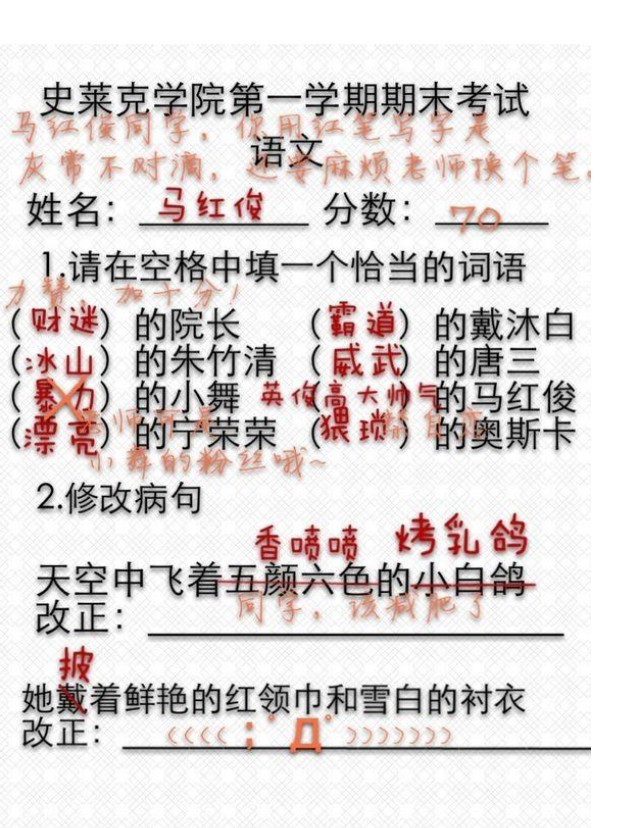 史莱克学院第一学期期末考试
马红俊同学，你用红笔写字是
语文
灰常不对滴，还要麻烦老师换个笔。
姓名：马红俊 分数：70
1.请在空格中填一个恰当的词语
力赞，加十分！
（财迷）的院长 （霸道）的戴沐白
（冰山）的朱竹清 （威武）的唐三
（暴力）的小舞 （英俊高大帅气的马红俊
（漂亮）的宁荣荣 （猥琐）的奥斯卡
老师可是 禁自恋
小舞的粉丝哦~
2.修改病句
香喷喷 烤乳鸽
天空中飞着五颜六色的小白鸽
同学，该减肥了
改正：
披
她戴着鲜艳的红领巾和雪白的衬衣
改正：（（（（；゜Д゜）））））））